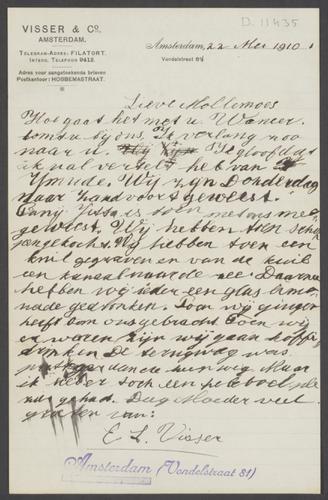 D. 11435
VISSER & Co,
AMSTERDAM.
TELEGRAM-ADRES: FILATORT.
INTERC. TELEFOON 9412.
Adres voor aangeteekende brieven
Postkantoor: HOBBEMASTRAAT.
Amsterdam, 22 Mei 1910
Vondelstraat 81
Lieve
Hoe gaat het met u. Wanneer
komt u bij ons. Ik verlang zoo
naar u. Ik geloof dat
ik u al verteld heb van
Ymuide. Wij zijn Donderdag
naar Zandvoort geweest.
Visser is toen met ons mee
geweest. Wij hebben toen
gekocht. Wij hebben toen een
kuil gegraven en van de kuil
een kanaal naar de zee Daarna
hebben wij ieder een glas limo
nade gedronken. Toen wij gingen
heeft ons gebracht. Toen wij
er waren zijn wij gaan koffie
drinken De terugweg was
hun weg Maar
ik heb er toch een
gehad. Dag Moeder veel
groeten van:
E L. Visser
Amsterdam (Vondelstraat 81)